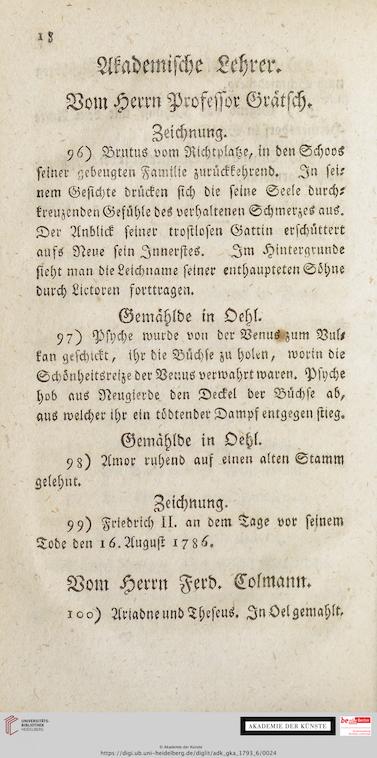 18
Akademische Lehrer.
Vom Herrn Professor Grätsch.
Zeichnung.
96) Brutus vom Richtplatze, in den Schoos
seiner gebeugten Familie zurückkehrend. In sei-
nem Gesichte drücken sich die seine Seele durch-
kreuzenden Gefühle des verhaltenen Schmerzes aus.
Der Anblick seiner trostlosen Gattin erschüttert
aufs Neue sein Innerstes. Im Hintergrunde
sieht man die Leichname seiner enthaupteten Söhne
durch Lictoren forttragen.
Gemählde in Oehl.
97) Psyche wurde von der Venus zum Vul-
kan geschickt, ihr die Büchse zu holen, worin die
Schönheitsreize der Venus verwahrt waren. Psyche
hob aus Neugierde den Deckel der Büchse ab,
aus welcher ihr ein tödtender Dampf entgegen stieg.
Gemählde in Oehl.
98) Amor ruhend auf einen alten Stamm
gelehnt.
Zeichnung.
99) Friedrich II. an dem Tage vor seinem
Tode den 16. August 1786.
Vom Herrn Ferd. Colmann.
100) Ariadne und Theseus. In Oel gemahlt.
UNIVERSITÄTS-
BIBLIOTHEK
HEIDELBERG
AKADEMIE DER KÜNSTE
© Akademie der Künste
https://digi.ub.uni-heidelberg.de/diglit/adk_gka_1793_6/0024